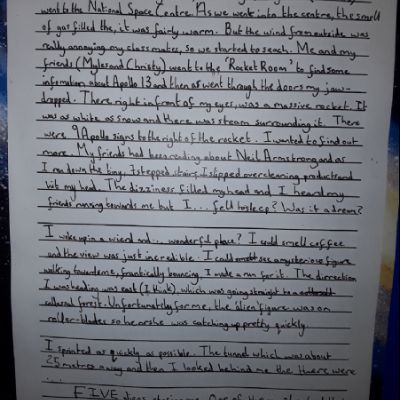 went to the National Space Centre. As we went into the centre, the smell
of gas filled the, it was fairly warm. But the wind from outside was
really annoying my class mates, so we started to seach. Me and my
friends (Myles and Christy) went to the 'Rocket Room' to find some
information about Apollo 13 and then as went through the doors my jaw-
dropped. There, right in front of my eyes, was a massive rocket. It
was as white as snow and there was steam surrounding it. There
were 9 Apollo signs to the right of the rocket. I wanted to find out
more. My friends had been reading about Neil Armstrong and as
I ran down the tiny, I stepped stairs I slipped over cleaning product and
hit my head. The dizziness filled my head and I heard my
friends running towards me but I.... fell to sleep? Was it a dream?
I woke up in a wierd and... wonderful place? I could smell coffee
and the view was just incredible. I could see a mysterious figure
walking towards me, frantically bouncing. I made a run for it. The dirrection
I was heading was east (I think), which was going straight to a
cultural forest. Unfortunately for me, the 'alien' figure was on
roller-blades so he or she was catching up pretty quickly.
I sprinted as quickly as possible. The tunnel which was about
25 metres away and then I looked behind me the there were
....
FIVE